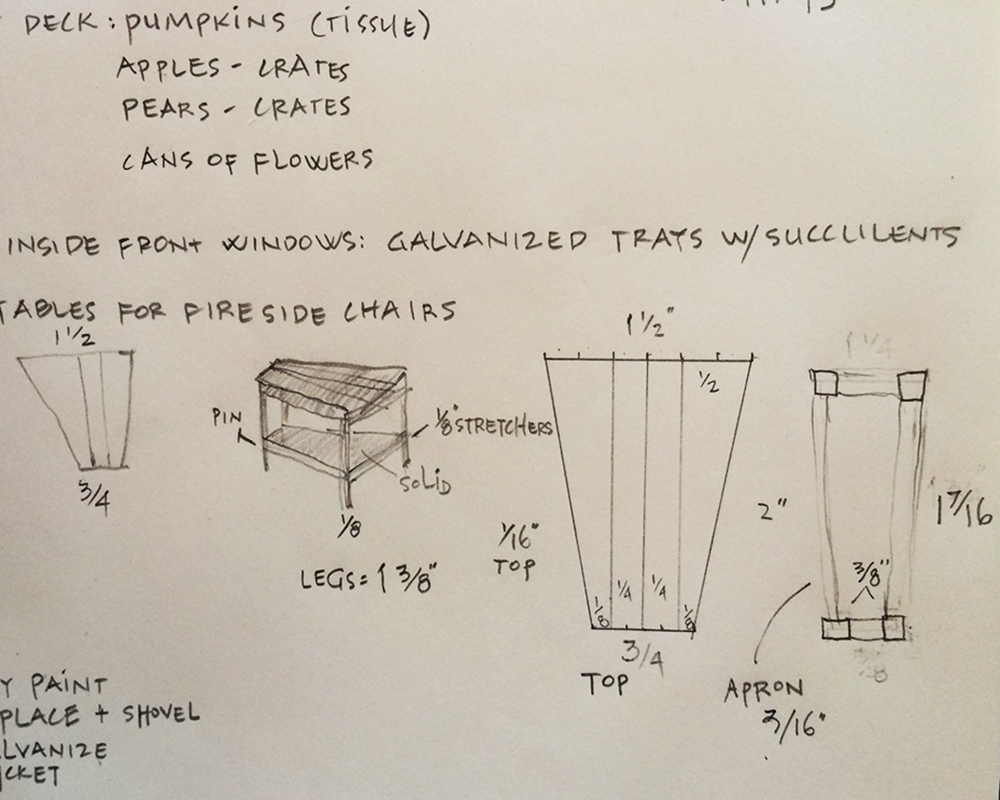 DECK: PUMPKINS (TISSUE)
APPLES - CRATES
PEARS - CRATES
CANS OF FLOWERS
INSIDE FRONT WINDOWS: GALVANIZED TRAYS W/ SUCCULENTS
TABLES FOR FIRESIDE CHAIRS
1 1/2
3/4
PIN
1/8" STRETCHERS
SOLID
1/8
LEGS = 1 3/8"
1 1/2"
1/2
1/16"
TOP
1/8 1/4 1/4 1/8
3/4
TOP
2"
1 1/4
1 7/16
3/8"
APRON
3/16"
Y PAINT
PLACE + SHOVEL
LVANIZE
CKET